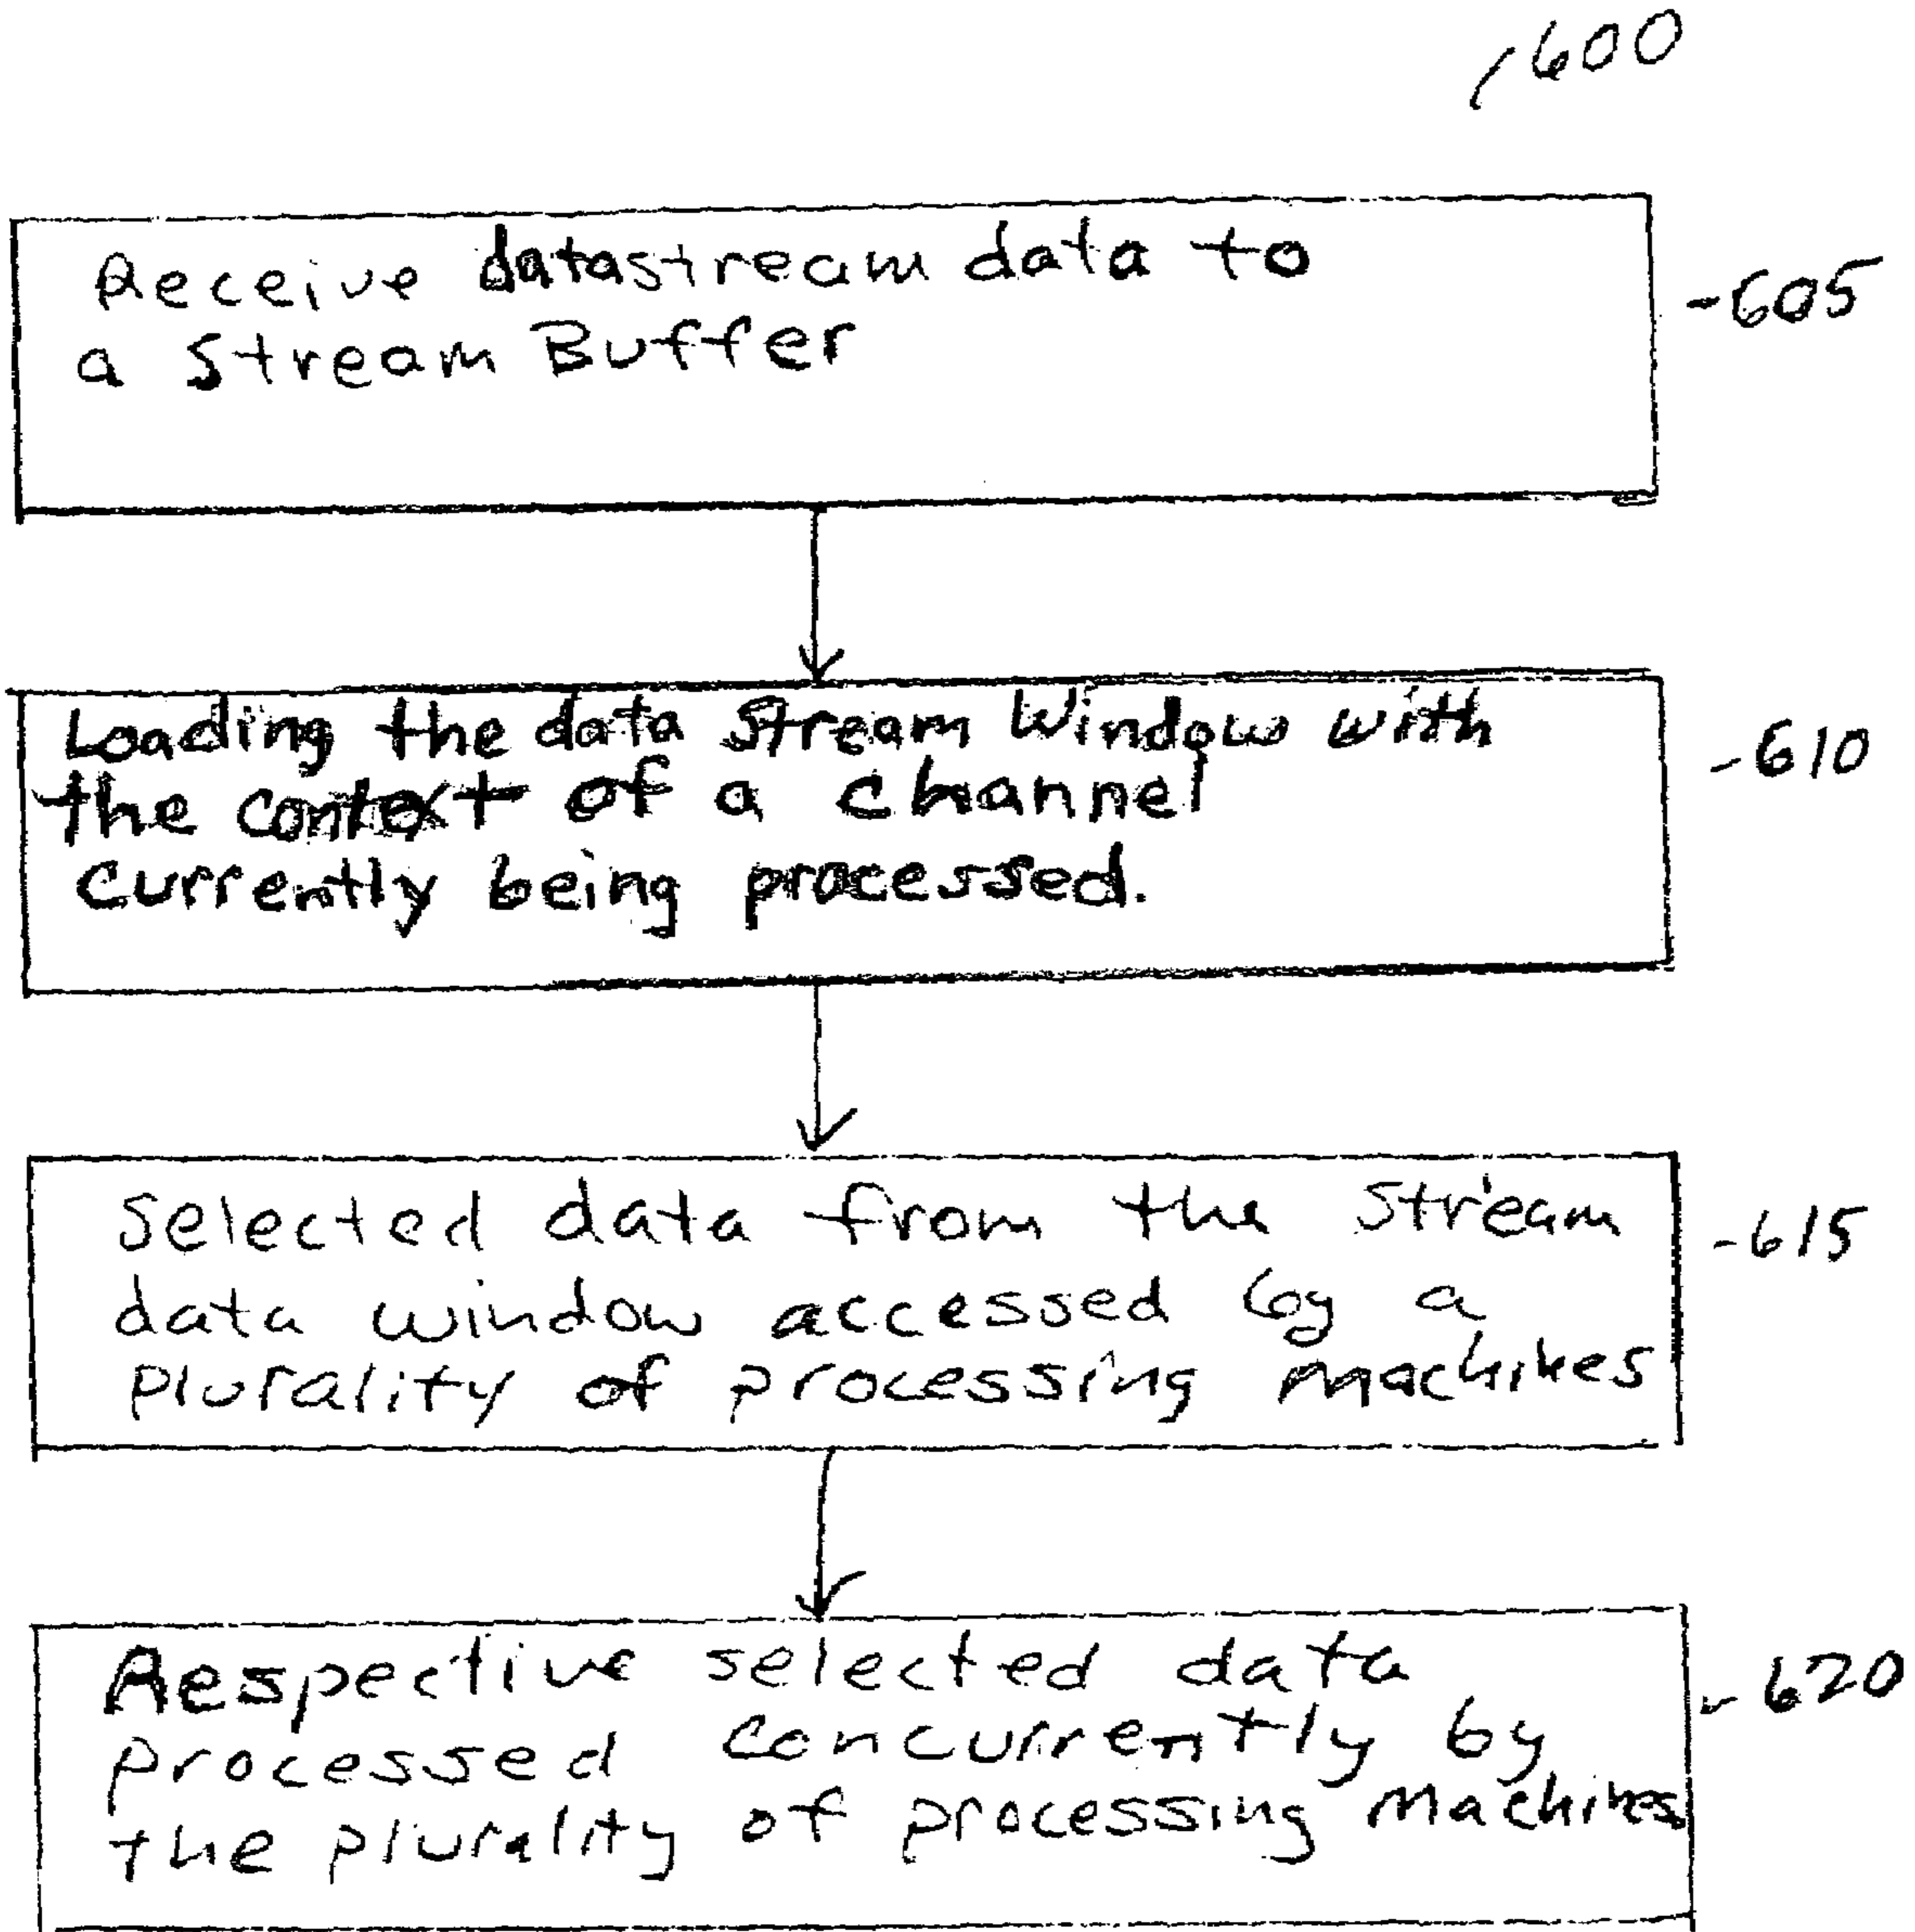 600
Receive datastream data to
a Stream Buffer
-605
Loading the data Stream Window with
the context of a channel
currently being processed.
-610
Selected data from the Stream
data window accessed by a
plurality of processing machines
-615
Respective selected data
processed concurrently by
the plurality of processing machines
-620